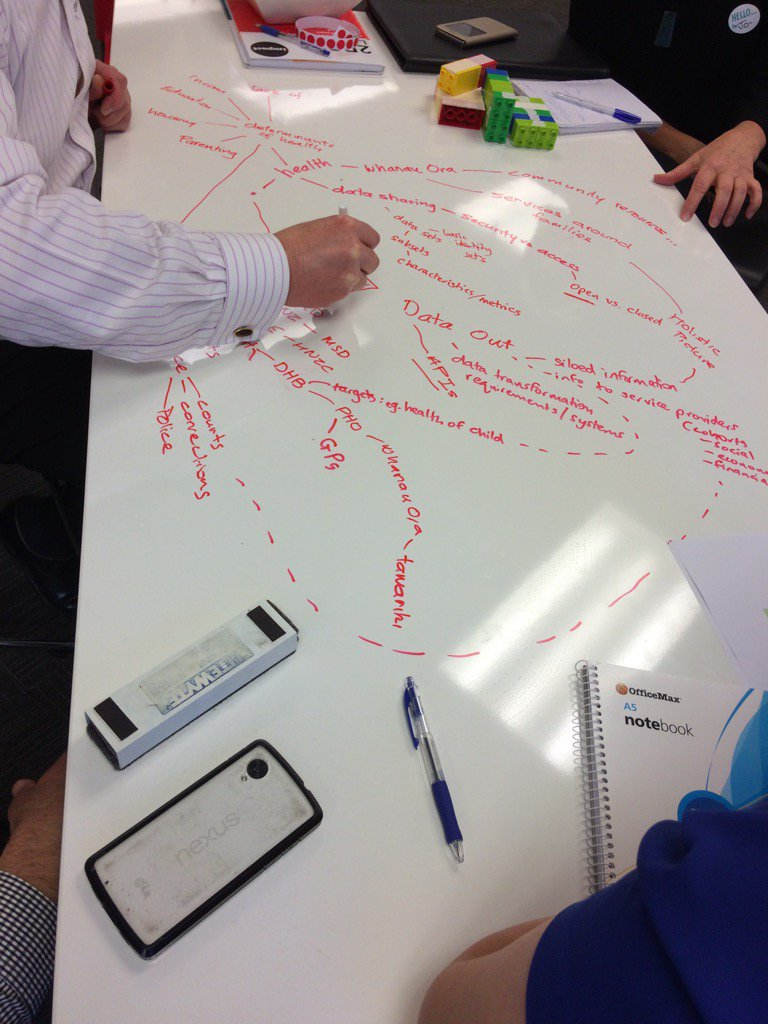 HELLO...
Jo
impact
25
income
education
housing
Parenting
lack of
determinants
of health
health – whanau Ora – community resources...
services around
families
data sharing – security vs access
data sets – basic
identity
sets
subsets
characteristics/metrics
open vs. closed
Holistic
Picture
Data Out
siloed information
info to service providers
APIs
data transformation
requirements/systems
Cohorts
– social
– economic
– financial
MSD
HNZC
DHB
targets: eg. health of child
PHO
GPs
whanau Ora
tamariki
courts
corrections
Police
nexus
LG
OfficeMax
A5
notebook